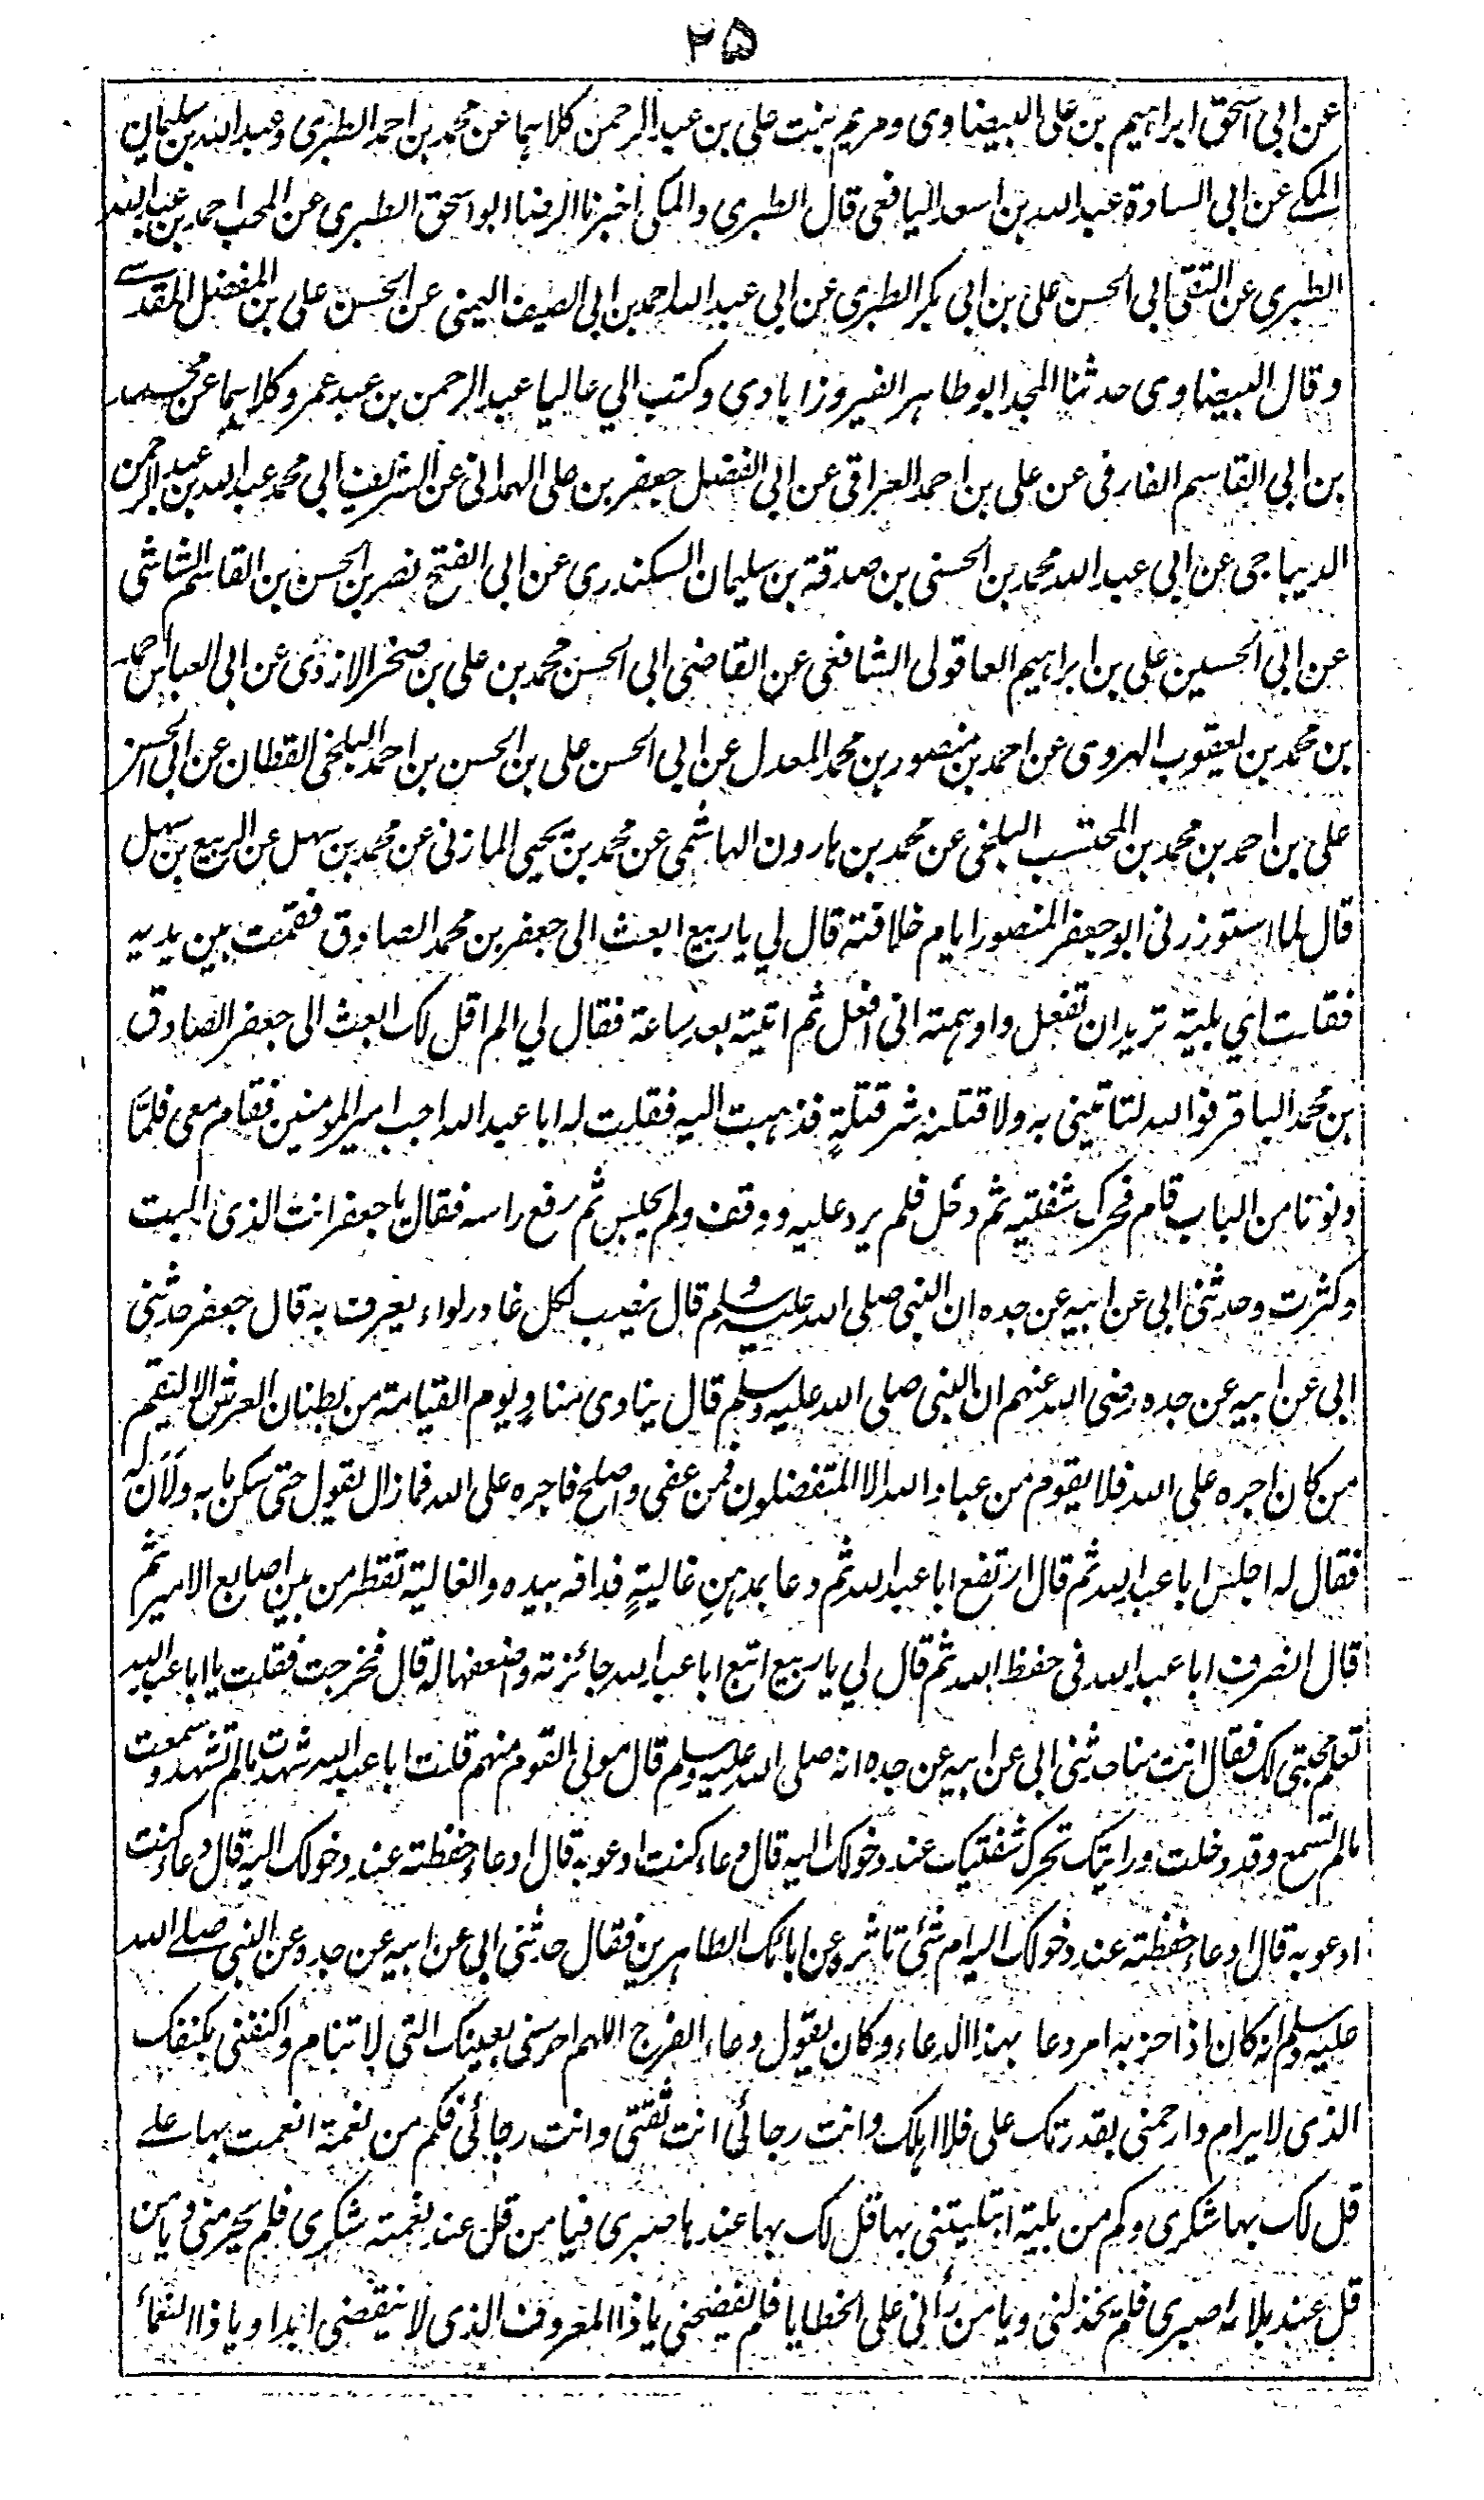 ۲۵
عن ابی اسحق ابراہیم بن علی البیضاوی ومریم بنت علی بن عبد الرحمن کلاہما عن محمد بن احمد الطبری وعبد اللہ بن سلیمان
المکے عن ابی السادۃ عبد اللہ بن اسعد الیافعی قال الطبری والمکی اخبرنا الرضا ابو اسحق الطبری عن المحب احمد بن عبد اللہ
الطبری عن التقی ابی الحسن علی بن ابی بکر الطبری عن ابی عبد اللہ احمد بن ابی الصیف الیمنی عن الحسن علی بن المفضل المقدسے
وقال البیضاوی حدثنا المجد ابو طاہر الفیروزابادی وکتب الی عالیا عبد الرحمن بن عبد عمرو کلاہما عن محمد
بن ابی القاسم الفارقی عن علی بن احمد العراقی عن ابی الفضل جعفر بن علی الہمدانی عن الشریف ابی محمد عبد اللہ بن عبد الرحمن
الدیباجی عن ابی عبد اللہ محمد بن الحسنی بن صدقۃ بن سلیمان السکندری عن ابی الفتح نصر بن الحسن بن القاسم الشاشی
عن ابی الحسین علی بن ابراہیم العاقولی الشافعی عن القاضی ابی الحسن محمد بن علی بن صخر الازدی عن ابی العباس احمد
بن محمد بن یعقوب الہروی عن احمد بن منصور بن محمد المعدل عن ابی الحسن علی بن الحسن بن احمد البلخی القطان عن ابی الحسن
علی بن احمد بن محمد بن المحتسب البلخی عن محمد بن ہارون الہاشمی عن محمد بن یحیی المازنی عن محمد بن سہل عن الربیع بن سہل
قال لما استوزرنی ابو جعفر المنصور ایام خلافتہ قال لی یا ربیع ابعث الی جعفر بن محمد الصادق فقمت بین یدیہ
فقلت ای بلیۃ ترید ان تفعل واوہمتہ انی افعل ثم اتیتہ بعد ساعۃ فقال لی الم اقل لک ابعث الی جعفر الصادق
بن محمد الباقر فواللہ لتاتینی بہ ولاقتلنہ شر قتلۃٍ فذہبت الیہ فقلت لہ ابا عبد اللہ اجب امیر المومنین فقام معی فلمَّا
دنونا من الباب قام فحرک شفتیہ ثم دخل فلم یرد علیہ ووقف ولم یجلس ثم رفع راسہ فقال یا جعفر انت الذی البت
وکثرت وحدثنی ابی عن ابیہ عن جدہ ان النبی صلی اللہ علیہ وسلم قال ینصب لکل غادر لواء یعرف بہ قال جعفر حدثنی
ابی عن ابیہ عن جدہ رضی اللہ عنہم ان النبی صلی اللہ علیہ وسلم قال ینادی منادٍ یوم القیامۃ من بطنان العرش الا لیقم
من کان اجرہ علی اللہ فلا یقوم من عباد اللہ الا المتفضلون فمن عفی واصلح فاجرہ علی اللہ فما زال یقول حتی سکن ما بہ ولَاَنَ لہ
فقال لہ اجلس ابا عبد اللہ ثم قال ارتفع ابا عبد اللہ ثم دعا بمدہنِ غالیۃٍ فدافہ بیدہ والغالیۃ تقطر من بین اصابع الامیر ثم
قال انصرف ابا عبد اللہ فی حفظ اللہ ثم قال لی یا ربیع اتبع ابا عبد اللہ جائزتہ واضعفہا لہ قال فخرجت فقلت یا ابا عبد اللہ
تعلم محبتی لک فقال انت منا حدثنی ابی عن ابیہ عن جدہ انہ صلی اللہ علیہ وسلم قال مولی القوم منہم قلت ابا عبد اللہ شہدت مالم تشہد وسمعت
مالم تسمع وقد دخلت ورایتک تحرک شفتیک عند دخولک الیہ قال دعاء کنت ادعو بہ قال ادعاء حفظتہ عند دخولک الیہ قال دعاء کنت
ادعو بہ قال ادعاء حفظتہ عند دخولک الیہ ام شئ تاثرہ عن ابائک الطاہرین فقال حدثنی ابی عن ابیہ عن جدہ عن النبی صلے اللہ
علیہ وسلم انہ کان اذا حزبہ امر دعا بہذا الدعاء وکان یقول دعاء الفرج اللہم احرسنی بعینک التی لا تنام واکنفنی بکنفک
الذی لا یرام وارحمنی بقدرتک علی فلا اہلک وانت رجائی انت ثقتی وانت رجائی فکم من نعمۃ انعمت بہا علے
قل لک بہا شکری وکم من بلیۃ ابتلیتنی بہا قل لک بہا عندہا صبری فیا من قل عند نعمتہ شکری فلم یحرمنی ویا من
قل عند بلائہ صبری فلم یخذلنی ویا من رأنی علی الخطایا فلم یفضحنی یا ذا المعروف الذی لا ینقضی ابدا ویا ذا النعمأ